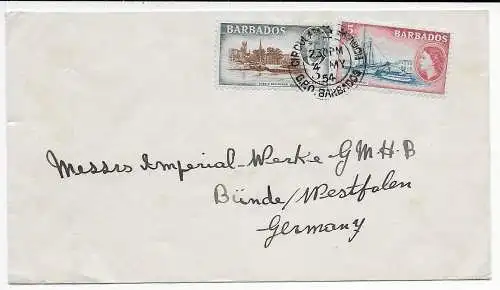 BARBADOS
5
BARBADOS
2 30 PM
4 MY
54
G.P.O. BARBADOS
Messrs Imperial-Werke G M H B
Bünde/Westfalen
Germany